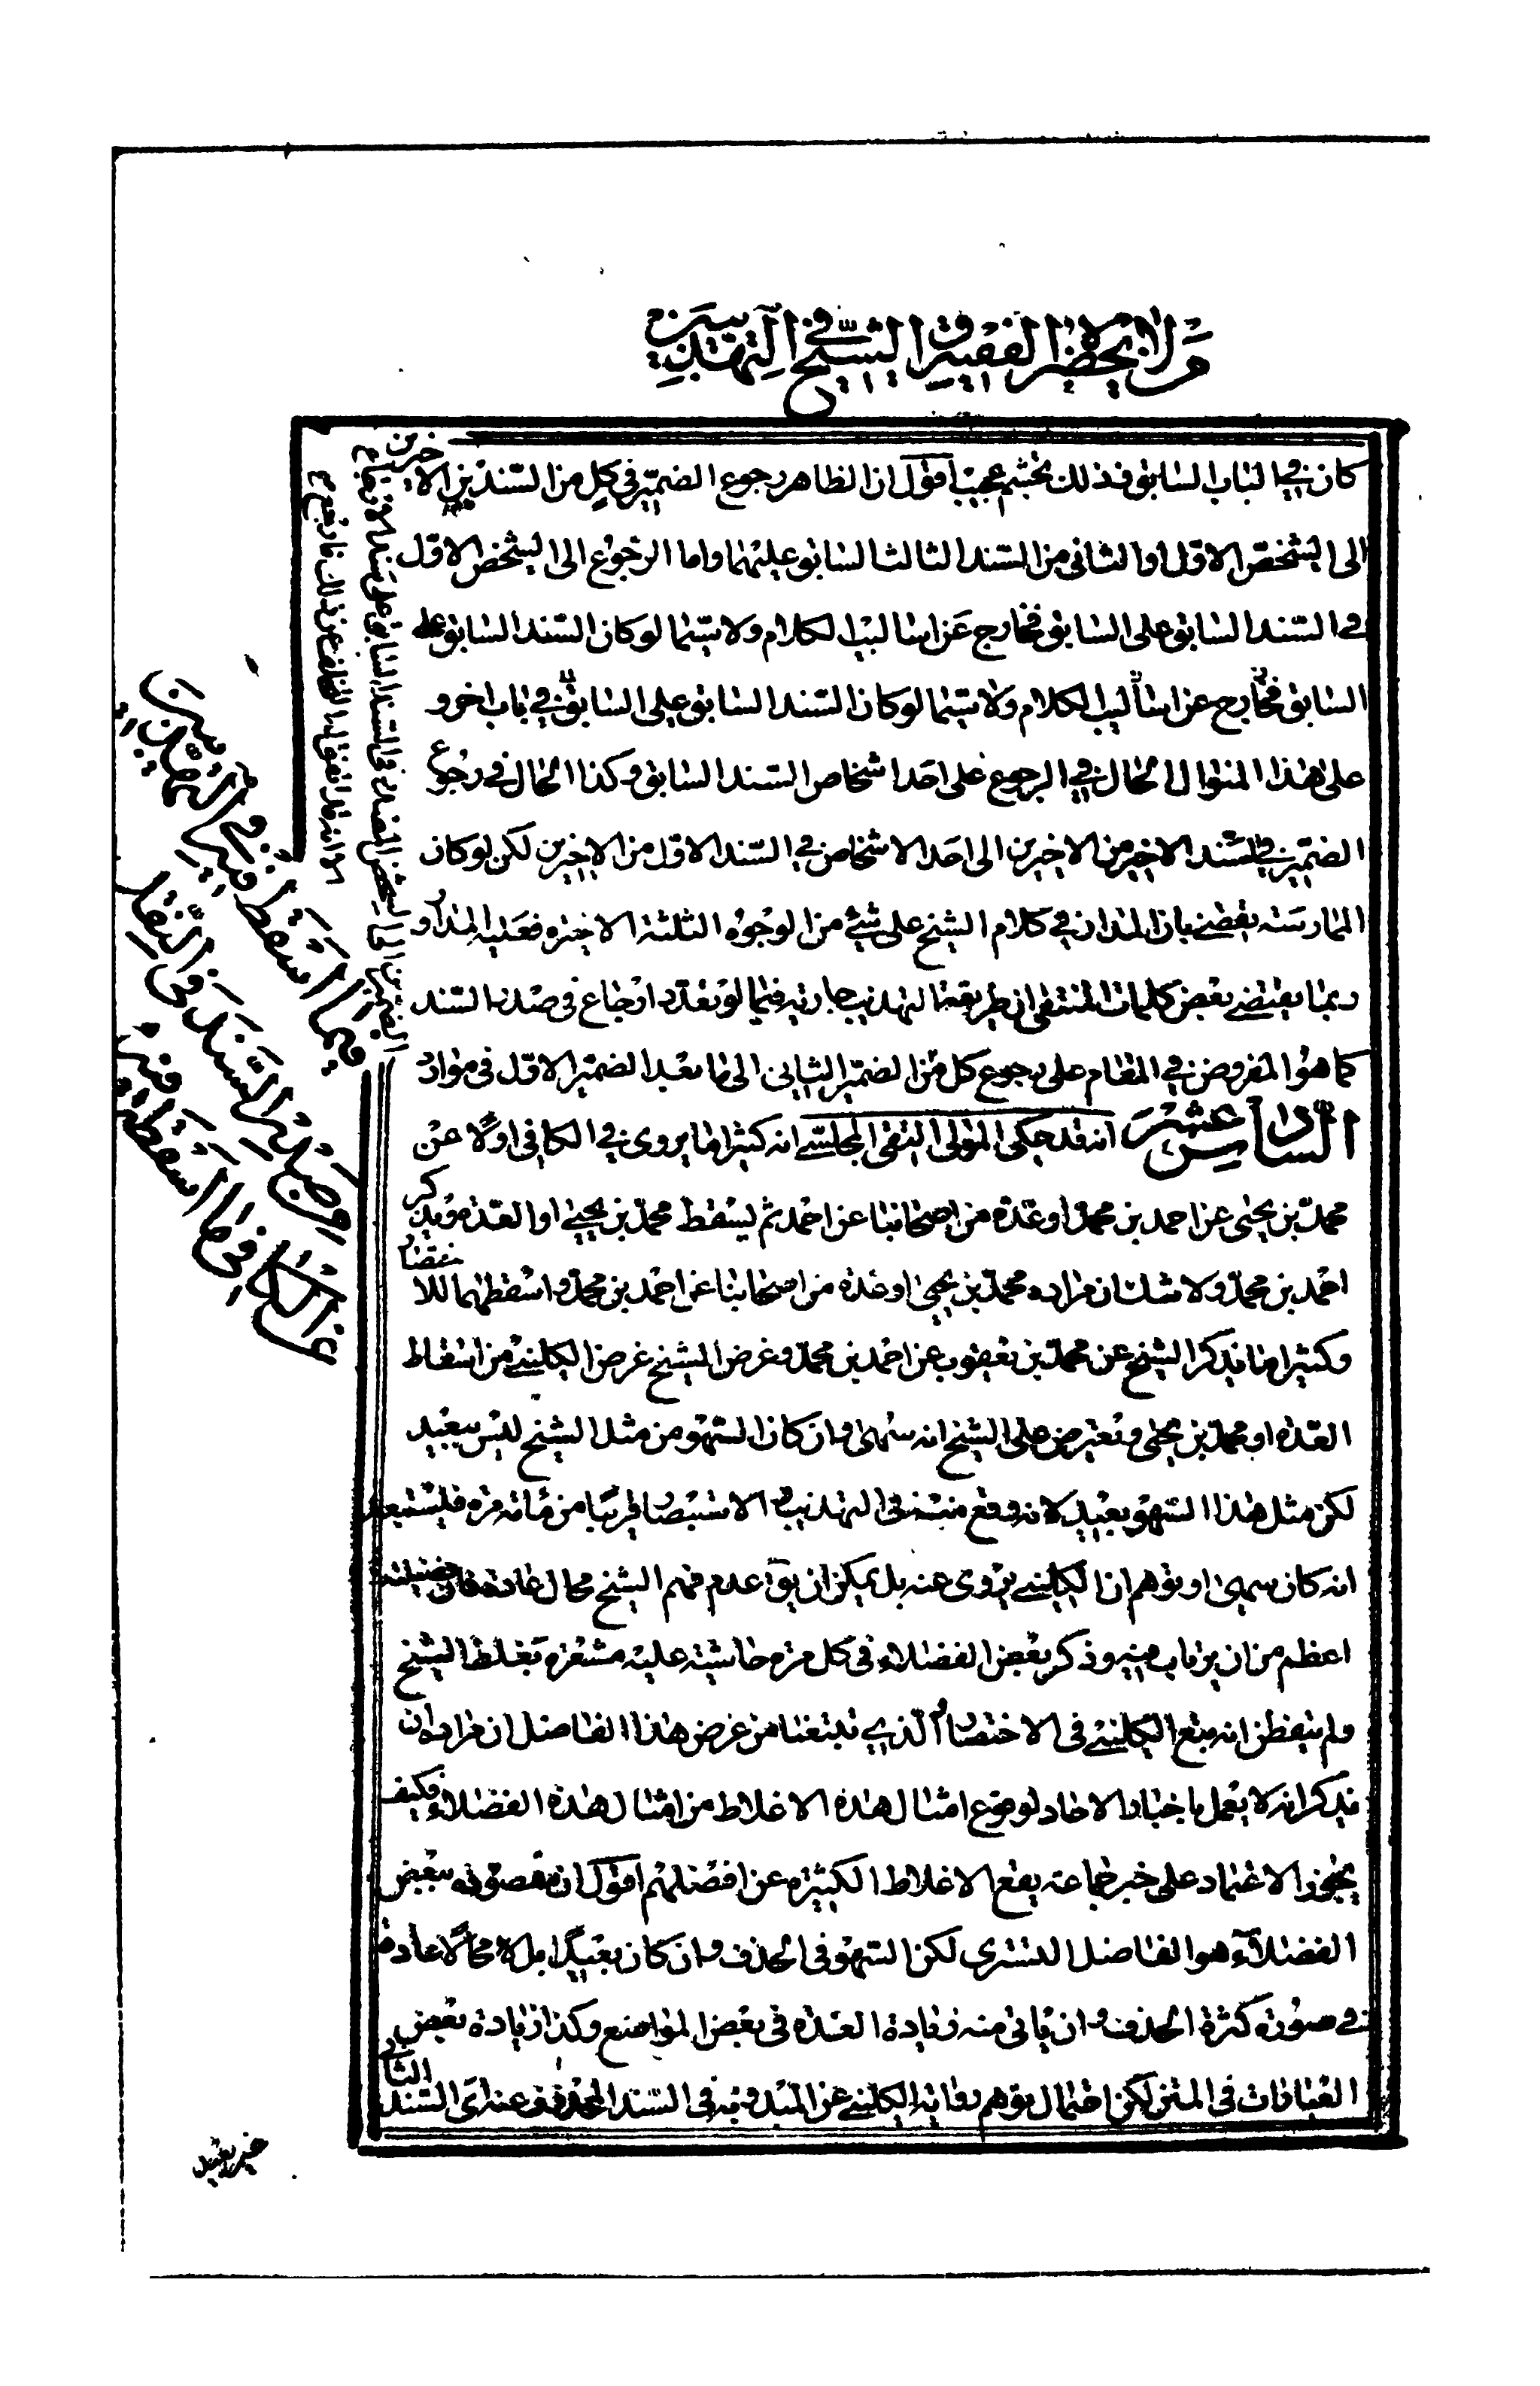 من لا يحضره الفقيه والشيخ في التهذيبين
كان في الباب السابق فذلك تجشم عجيب اقول ان الظاهر رجوع الضمير في كل من السندين الاخيرين
الى الشخص الاول او الثانى من السند الثالث السابق عليهما واما الرجوع الى الشخص الاول
في السند السابق على السابق فخارج عن اساليب الكلام ولا سيما لو كان السند السابق على
السابق فخارج عن اساليب الكلام ولا سيما لو كان السند السابق على السابق في باب اخر و
على هذا المنوال الحال في الرجوع على احد اشخاص السند السابق وكذا الحال في رجوع
الضمير في السند الاخير من الاخيرين الى احد الاشخاص في السند الاول من الاخيرين لكن لو كان
الممارسة يقضى بان المدار في كلام الشيخ على شئ من الوجوه الثلثة الاخيرة فعليه المدار و
ربما يقتضى بعض كلمات المنتقى ان طريقة التهذيب جارية فيما لو تعدد ارجاع في صدر السند
كما هو المفروض في المقام على رجوع كل من الضمير الثانى الى ما بعد الضمير الاول فى موارد
السادس عشر انه قد حكى المولى التقى المجلسى انه كثيرا ما يروى في الكافى اولا عن
محمد بن يحيى عن احمد بن محمد او عدة من اصحابنا عن احمد ثم يسقط محمد بن يحيى او العدة ويذكر
احمد بن محمد ولا شك ان مراده محمد بن يحيى او عدة من اصحابنا عن احمد بن محمد واسقطهما للاختصار
وكثيرا ما يذكر الشيخ عن محمد بن يعقوب عن احمد بن محمد وغرض الشيخ غرض الكلينى من اسقاط
العدة او محمد بن يحيى ونعترض على الشيخ انه سهى وان كان السهو من مثل الشيخ ليس ببعيد
لكن مثل هذا السهو بعيد لانه وقع منه في التهذيب و الاستبصار قريبا من مائة مرة فليستبعد
انه كان سهى او توهم ان الكلينى يروى عنه بل يمكن ان يق عدم فهم الشيخ محال عادة فان فضيلته
اعظم من ان يرتاب فيه وذكر بعض الفضلاء في كل مرة حاشية عليه مشعرة بغلط الشيخ
ولم يتفطن انه يتبع الكلينى فى الاختصار الذي تبتغنا من غرض هذا الفاضل ان مراده ان
يذكر انه لا يعمل باخبار الاحاد لوقوع امثال هذه الاغلاط من امثال هذه الفضلاء فكيف
يجوز الاعتماد على خبر جماعة يقع الاغلاط الكثيرة عن افضلهم اقول ان مقصوده ببعض
الفضلاء هو الفاضل التسترى لكن السهو فى الحذف وان كان بعيدا بل لا محالا عادة
في صورة كثرة الحذف وان ياتى منه زيادة العدة فى بعض المواضع وكذا زيادة بعض
العبارات فى المتن لكن احتمال توهم رواية الكلينى عن المبدو به فى السند المحذوف عنه اى السند الثانى
غير بعيد
فيما اسقط فيه في التهذيبين
او صدر السند فى النقل
عن الكافى ما اسقطه فيه